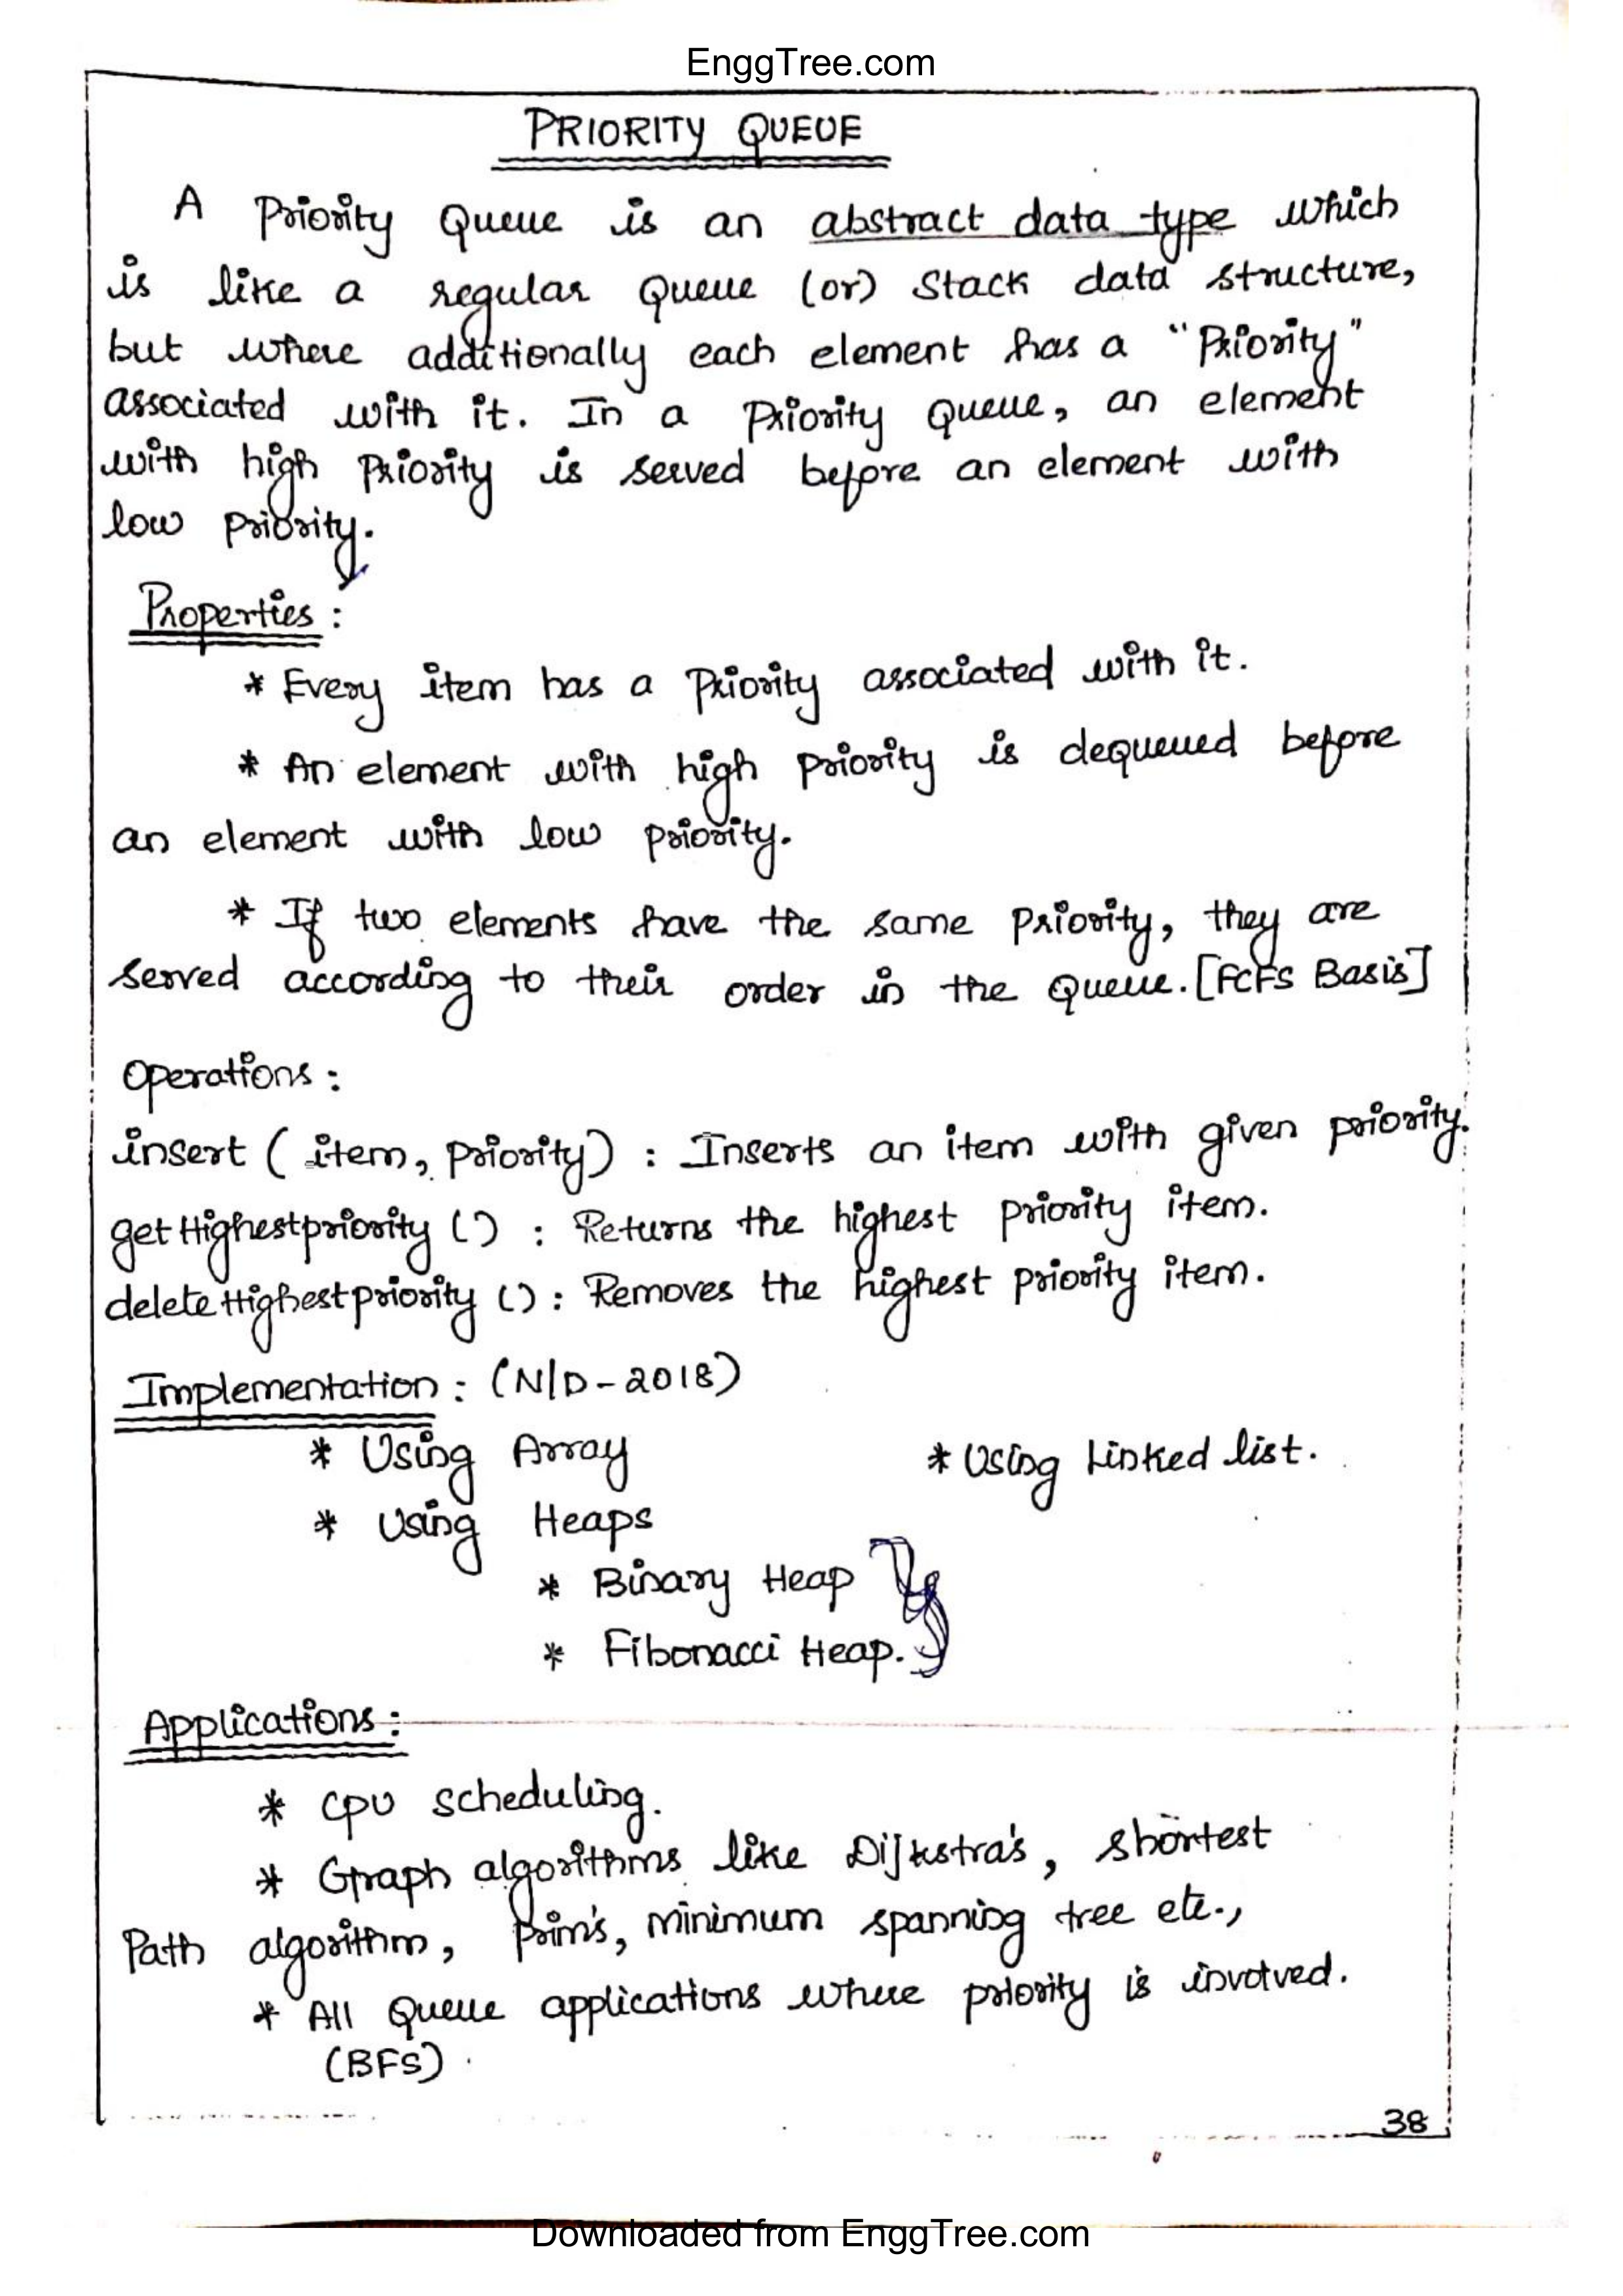 EnggTree.com
PRIORITY QUEUE
A Priority Queue is an abstract data type which
is like a regular Queue (or) Stack data structure,
but where additionally each element has a "Priority"
associated with it. In a Priority Queue, an element
with high Priority is served before an element with
low Priority.
Properties :
* Every item has a Priority associated with it.
* An element with high Priority is dequeued before
an element with low priority.
* If two elements have the same Priority, they are
served according to their order in the Queue. [FCFS Basis]
Operations :
insert ( item, priority) : Inserts an item with given priority.
getHighestpriority () : Returns the highest priority item.
deleteHighestpriority () : Removes the highest priority item.
Implementation : (N/D-2018)
* Using Array * Using Linked list.
* Using Heaps
* Binary Heap
* Fibonacci Heap.
Applications :
* CPU scheduling.
* Graph algorithms like Dijkstra's, shortest
Path algorithm, prim's, minimum spanning tree etc.,
* All Queue applications where priority is involved.
(BFS)
38
Downloaded from EnggTree.com